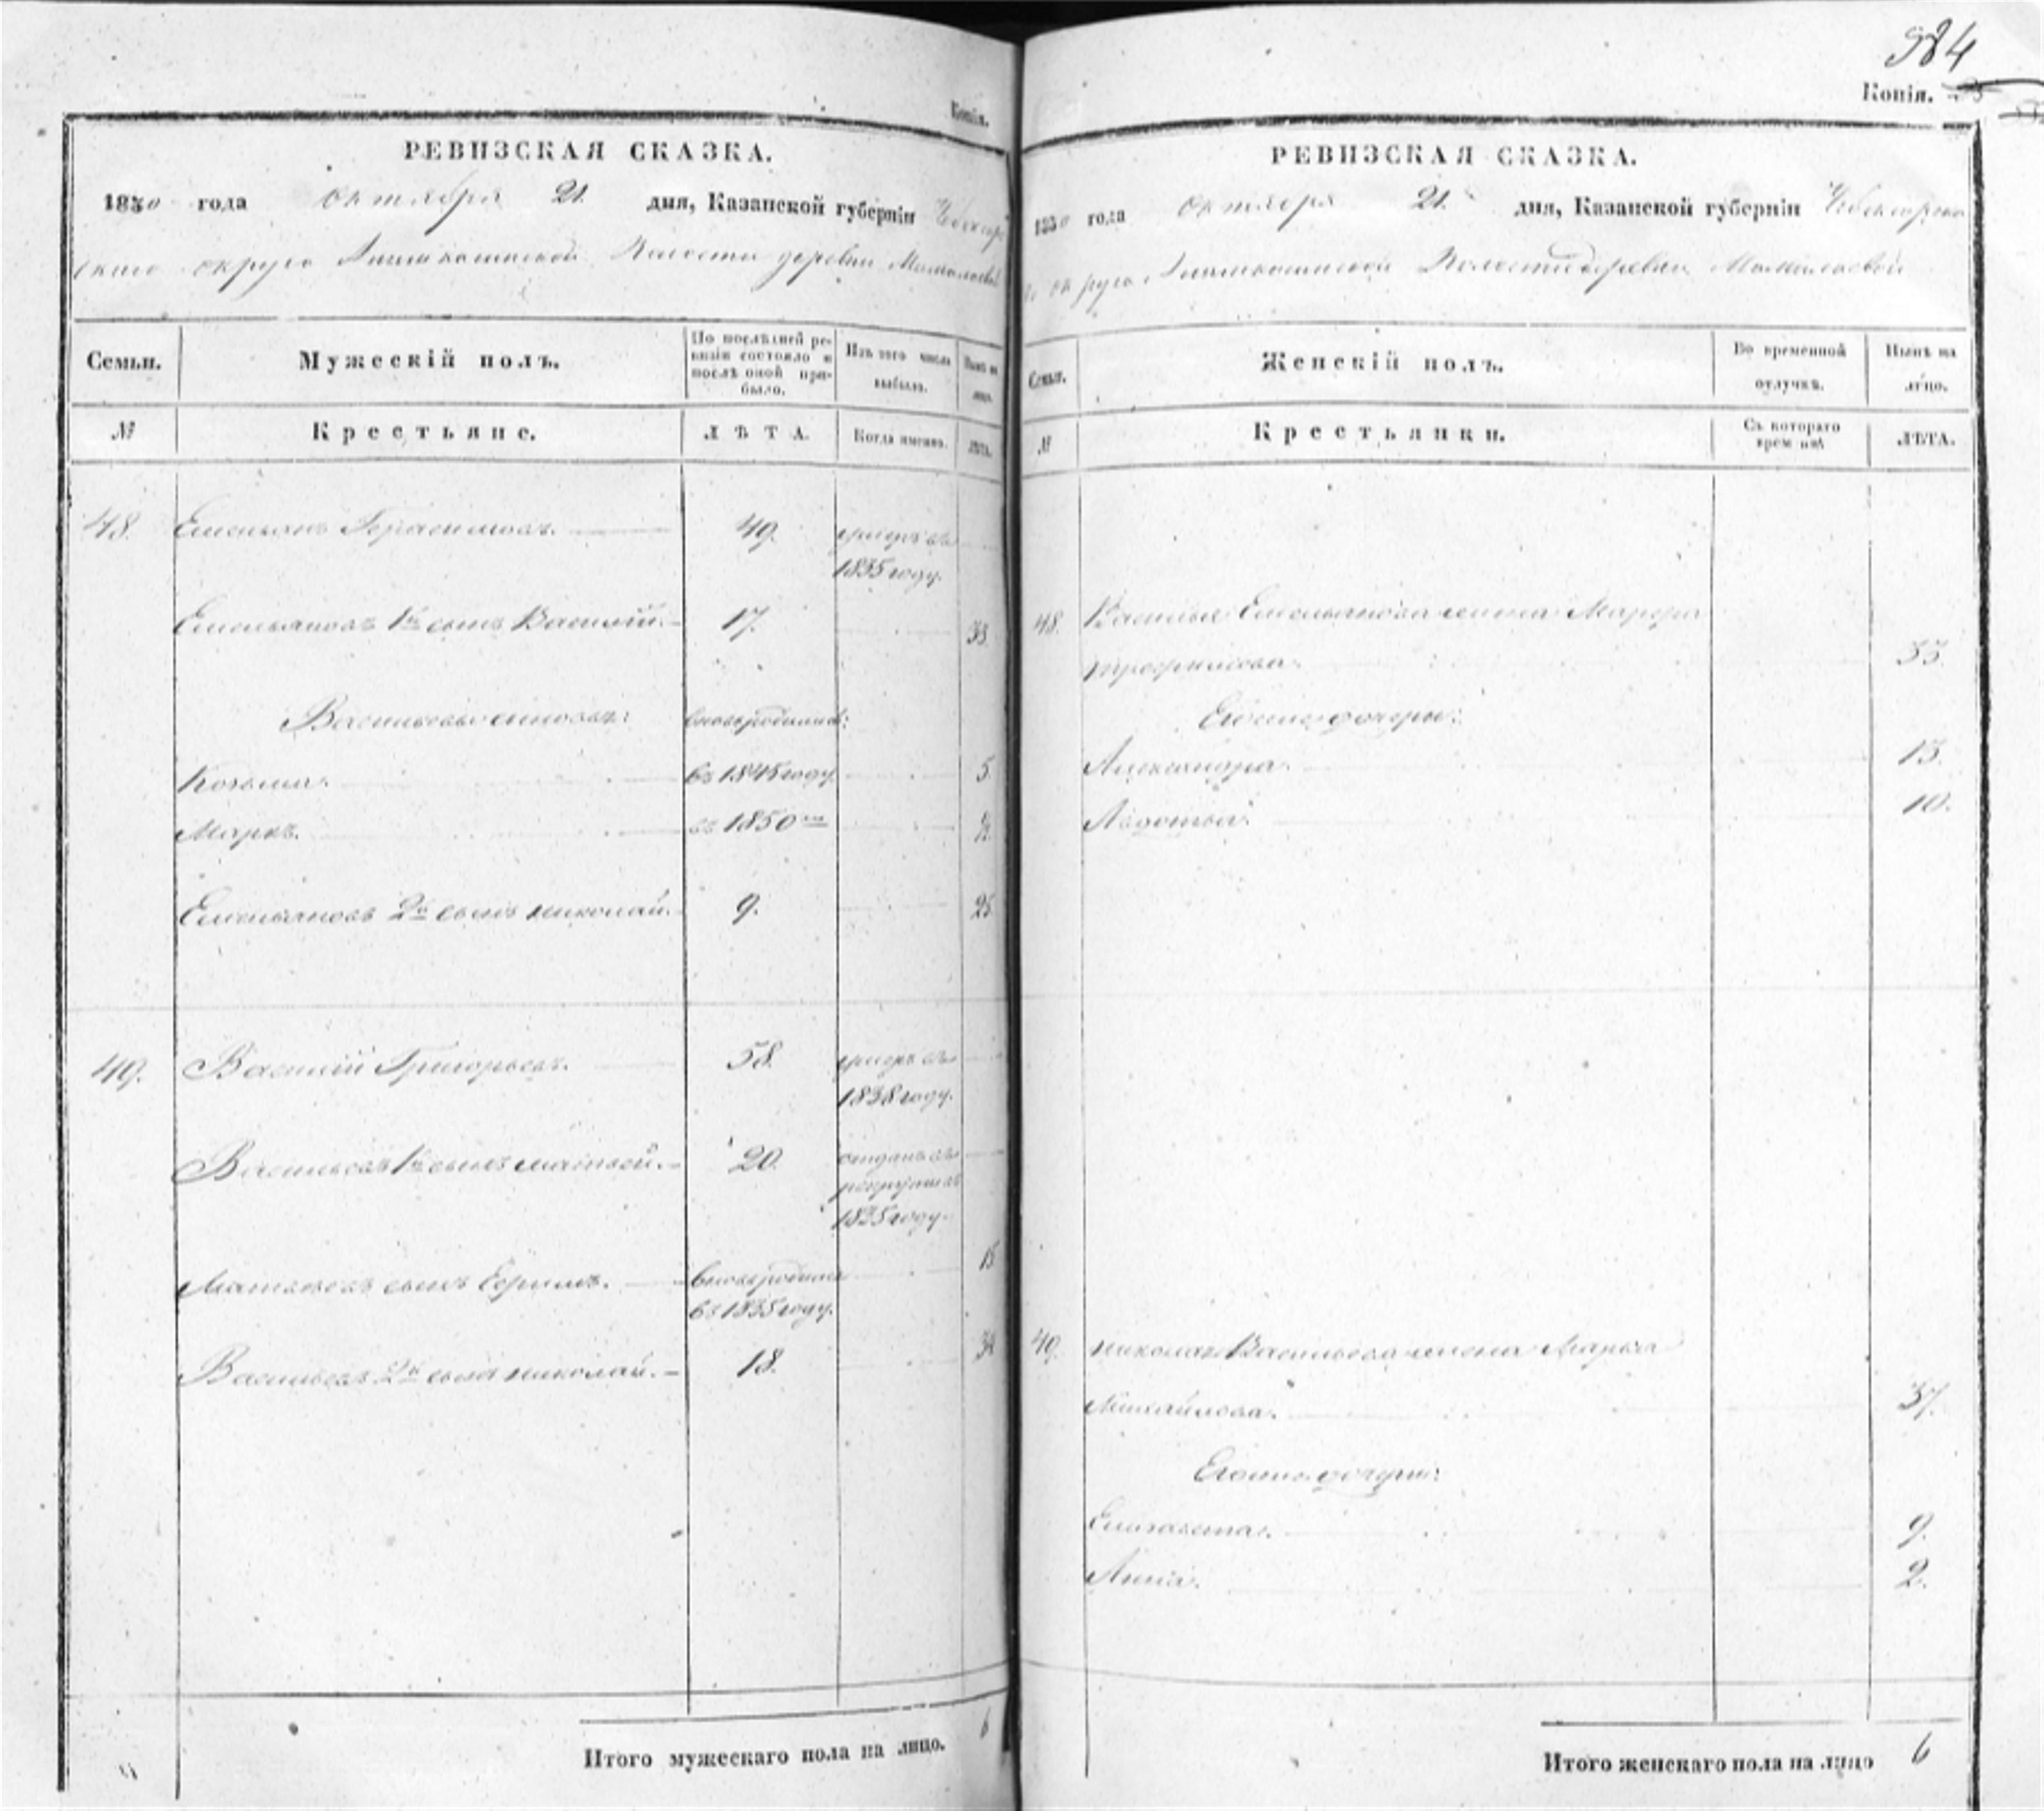 984
Копія.
Копія.
РЕВИЗСКАЯ СКАЗКА.
1850 года Октября 21. дня, Казанской губерніи Чебоксар
скаго округа Волости деревни
Семьи.
Мужескій полъ.
По послѣдней ре-
визіи состояло и
послѣ оной при-
было.
Изъ того числа
выбыло.
Нынѣ на
лицо.
№
Крестьяне.
ЛѢТА.
Когда именно.
ЛѢТА.
48. Емельянъ Герасимовъ. 49. умеръ въ
1835 году.
Емельяновъ 1й сынъ Василій. 17. 33.
Васильевы сыновья: вновьродились:
Козьма. въ 1845 году. 5.
Маркъ. въ 1850мъ
Емельяновъ 2й сынъ николай. 9. 25.
49. Василій Григорьевъ. 58. умеръ въ
1838 году.
Васильевъ 1й сынъ матвей. 20. отданъ въ
рекруты въ
1835 году.
Матвѣевъ сынъ Ефимъ. вновьродился 15
въ 1835 году.
Васильевъ 2й сынъ николай. 18. 34
Итого мужескаго пола на лицо. 6
РЕВИЗСКАЯ СКАЗКА.
1850 года Октября 21. дня, Казанской губерніи Чебоксарска
го округа Волости деревни
Семьи.
Женскій полъ.
Во временной
отлучкѣ.
Нынѣ на
лицо.
№
Крестьянки.
Съ котораго
времени
ЛѢТА.
48. Василья Емельянова жена Марфа
трофимова. 33.
Егоже дочери:
Александра. 13.
Авдотья. 10.
49. николая Васильева жена Марья
Михайлова. 37.
Егоже дочери:
Елизавета. 9.
Анна. 2.
Итого женскаго пола на лицо 6